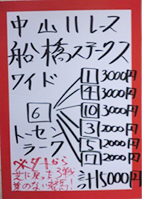 中山11レース
船橋ステークス
ワイド
6
トーセン
ラーク
1 3000円
4 3000円
10 3000円
3 2000円
5 2000円
7 2000円
計15000円
から